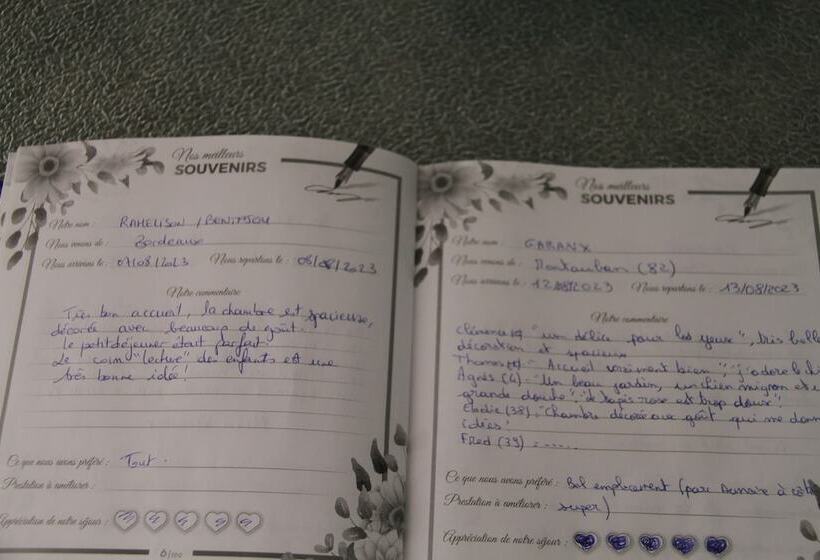 Nos meilleurs
SOUVENIRS
Notre nom : RAHELISON / BENITSOU
Nous venons de : Bordeaux
Nous arrivons le : 07/08/2023 Nous repartons le : 08/08/2023
Notre commentaire
Très bon accueil, la chambre est spacieuse,
décorée avec beaucoup de goût.
Le petit déjeuner était parfait.
Le coin "lecture" des enfants est une
très bonne idée!
Ce que nous avons préféré : Tout.
Prestation à améliorer :
Appréciation de notre séjour :
6/100
Nos meilleurs
SOUVENIRS
Notre nom : GARANX
Nous venons de : Montauban (82)
Nous arrivons le : 12/08/2023 Nous repartons le : 13/08/2023
Notre commentaire
"un délice pour les yeux", très belle
décoration et spacieux
Thomas : "Accueil vraiment bien"; "j'adore le
Agnès (4) : "Un beau jardin, un chien mignon et
grande douche"; "le tapis rose est trop doux"
Elodie (38) : "Chambre décorée avec goût qui me donne
idées"
Fred (39) : .....
Ce que nous avons préféré : Bel emplacement (parc à côté
Prestation à améliorer : super)
Appréciation de notre séjour :